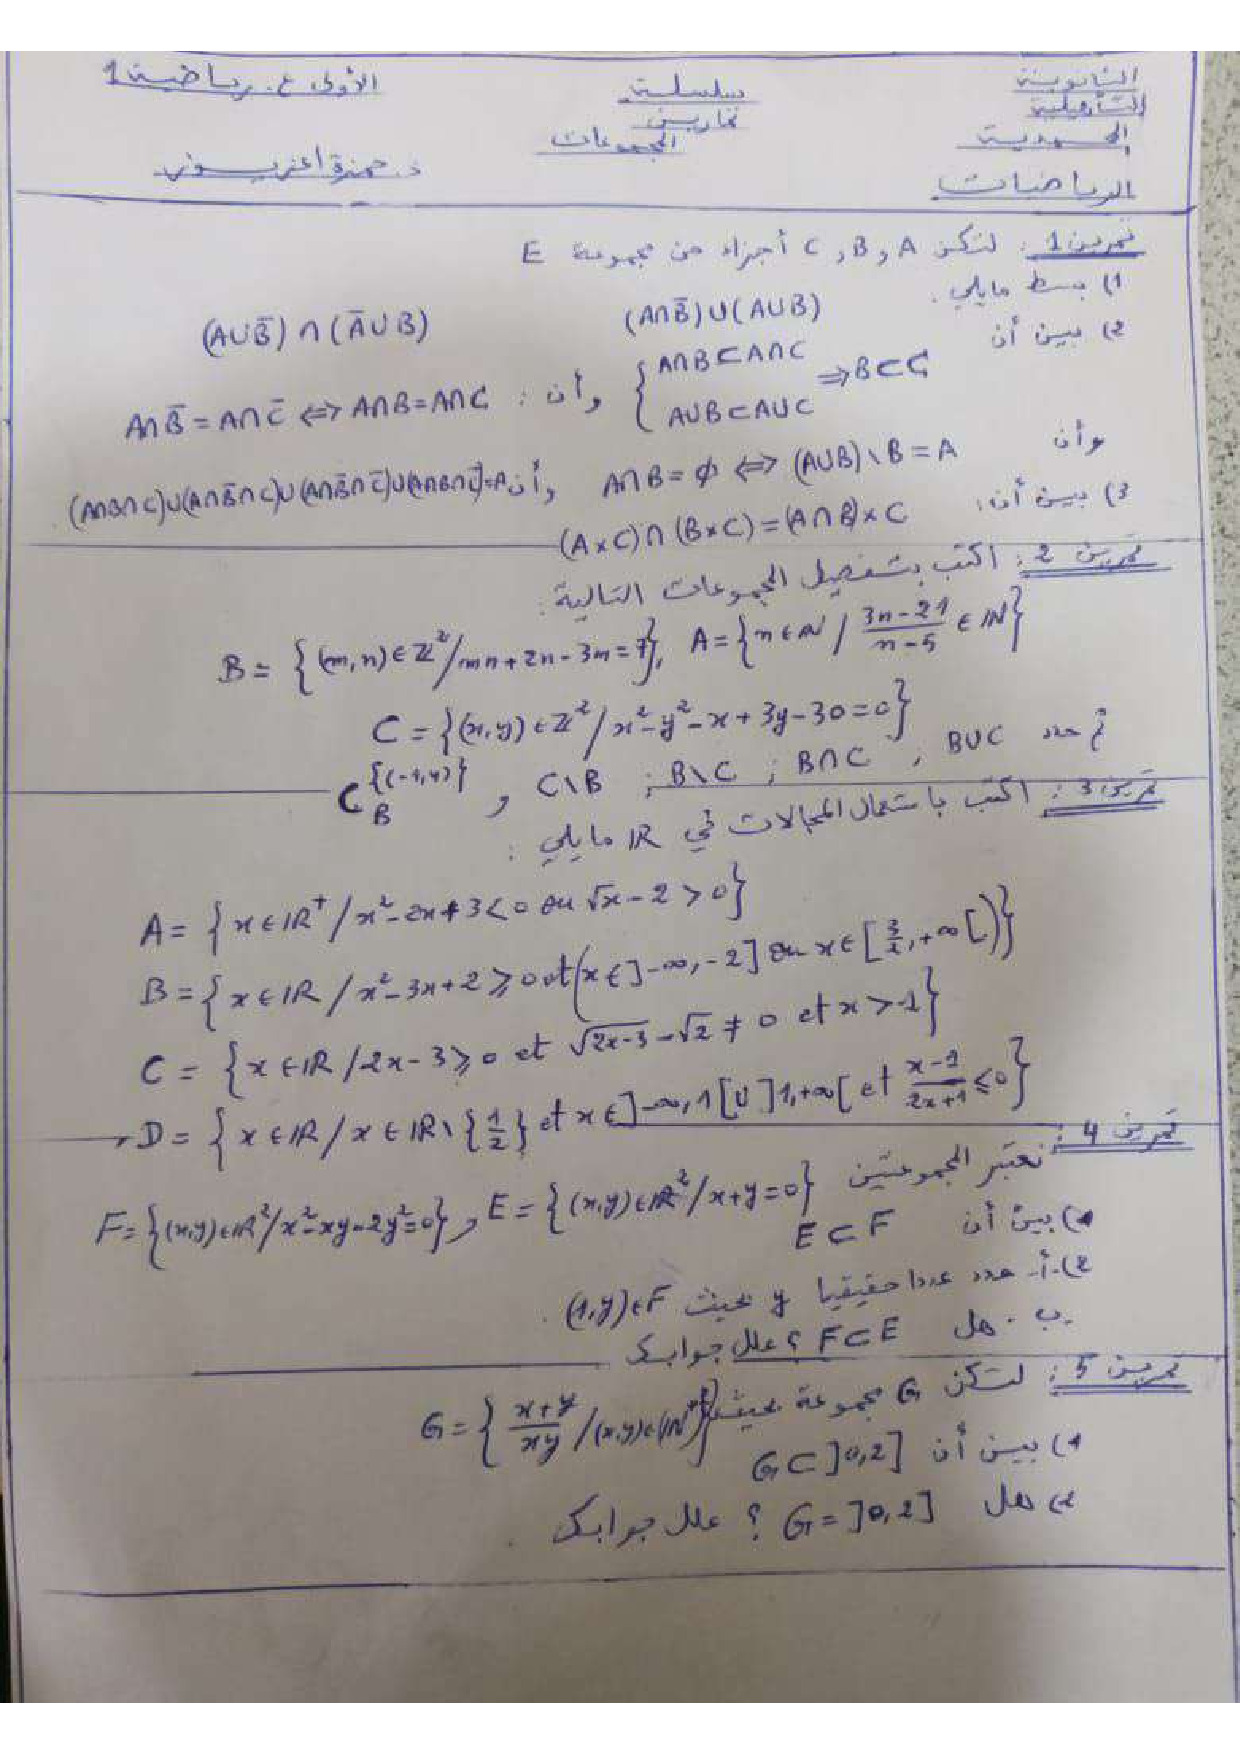 الثانوية سلسلة الأولى ع. رياضية 1
التأهيلية تمارين
المحمدية المجموعات
الرياضيات ذ. حمزة
تمرين 1 : لتكن A و B و C أجزاء من مجموعة E
1) بسط مايلي :
(A∩B̄)∪(A∪B) (A∪B̄)∩(Ā∪B)
2) بين أن { A∩B⊂A∩C A∪B⊂A∪C ⇒ B⊂C وأن : A∩B̄=A∩C̄ ⇔ A∩B=A∩C
وأن A∩B=∅ ⇔ (A∪B)\B=A وأن (A∩B∩C)∪(A∩B̄∩C)∪(A∩B̄∩C̄)∪(A∩B∩C̄)=A
3) بين أن : (A×C)∩(B×C)=(A∩B)×C
تمرين 2 : اكتب بتفصيل المجموعات التالية :
A={n∈ℕ / (3n-21)/(n-5) ∈ℕ} , B={(m,n)∈ℤ²/mn+2n-3m=7}
C={(x,y)∈ℤ²/x²-y²-x+3y-30=0}
ثم حدد B∪C , B∩C ; B\C ; C\B , C_B^{(-1,4)}
تمرين 3 : اكتب باستعمال المجالات في ℝ مايلي :
A={x∈ℝ⁺/x²-2x+3<0 ou √x-2>0}
B={x∈ℝ/x²-3x+2⩾0 et(x∈]-∞,-2] ou x∈[3/2,+∞[)}
C={x∈ℝ/2x-3⩾0 et √(2x-3)-√2≠0 et x>-1}
D={x∈ℝ/x∈ℝ\{1/2} et x∈]-∞,1[∪]1,+∞[ et (x-1)/(2x+1)⩽0}
تمرين 4 :
نعتبر المجموعتين E={(x,y)∈ℝ²/x+y=0} , F={(x,y)∈ℝ²/x²-xy-2y²=0}
1) بين أن E⊂F
2)-أ- حدد عددا حقيقيا y بحيث (1,y)∈F .
ب - هل F⊂E ؟ علل جوابك
تمرين 5 : لتكن G مجموعة بحيث G={(x+y)/xy /(x,y)∈(ℕ*)²}
1) بين أن G⊂]0,2]
2) هل G=]0,2] ؟ علل جوابك .